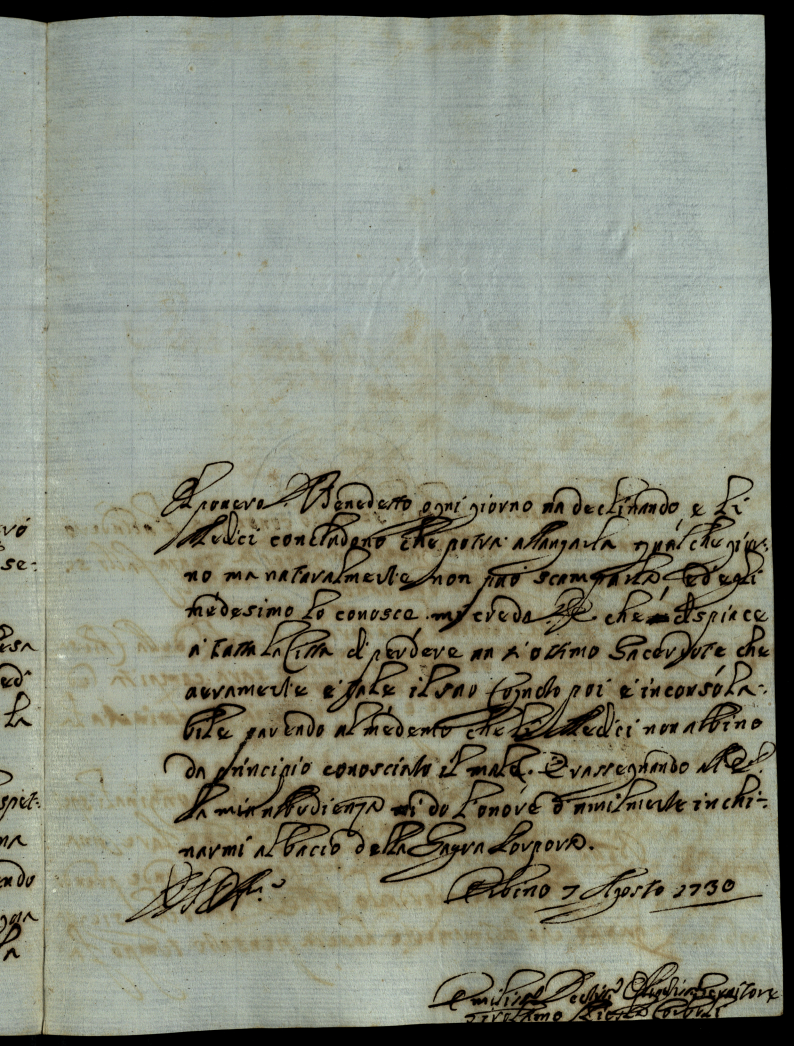 vó
se:
la
spet:
na
ndo
la
Il povero Benedetto ogni giorno va declinando e li
Medici concludono che potrà allangarla qualche gior:
no ma naturalmente non può scamparla ed egli
medesimo lo conosce mi creda che dispiace
a tutta la Città di perdere un sì ottimo Sacerdote che
veramente è tale il suo Cognato poi è inconsola:
bile parendo al medemo che li Medici non abbino
da principio conosciuto il male. E rassegnando all'
la mia ubudienza mi do l'onore d'umilmente inchi:
narmi al bacio della Sagra Porpora.
Urbino 7 Agosto 1730
Umiliss Servitore
Girolamo